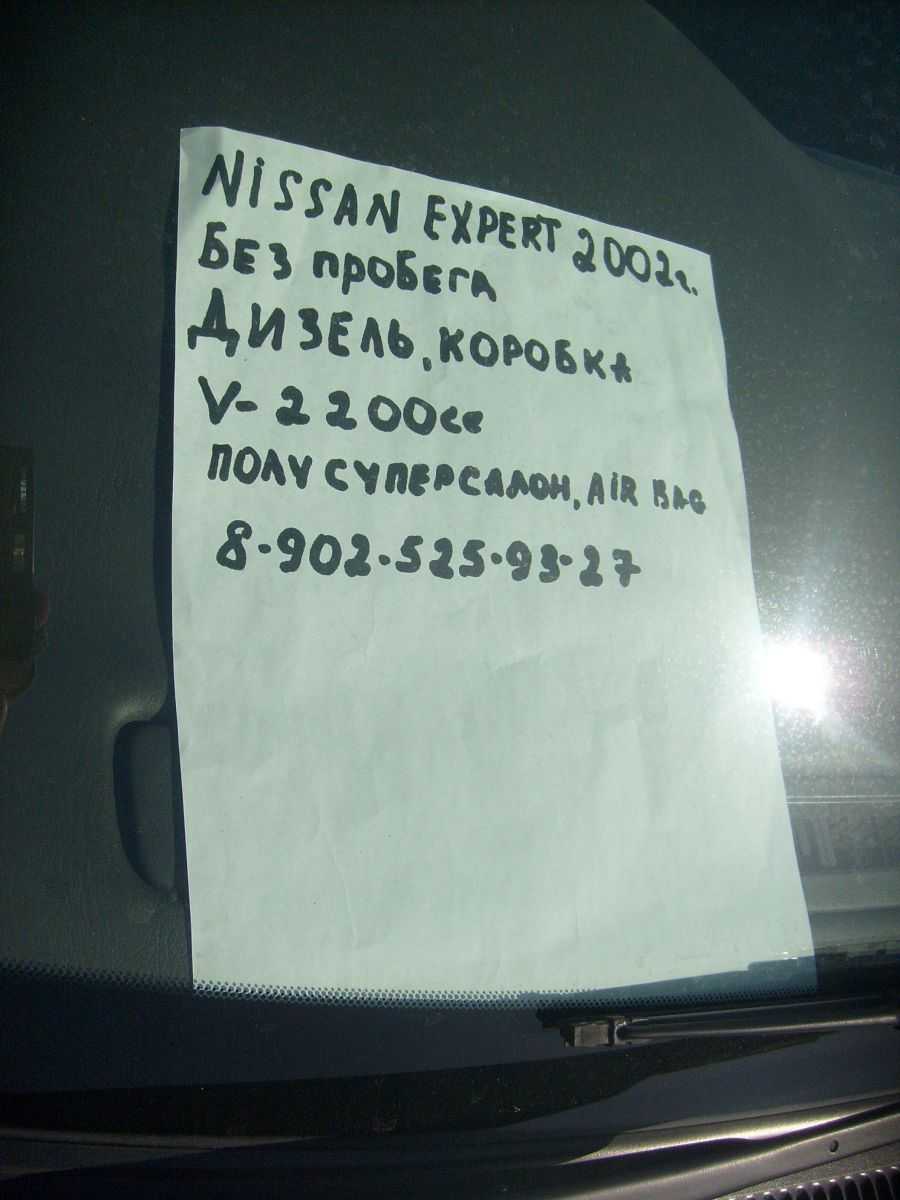 NiSSAN EXPERT 2002г.
БЕЗ ПРОБЕГА
ДИЗЕЛЬ, КОРОБКА
V-2200сс
ПОЛУСУПЕРСАЛОН, AiR BAG
8-902-525-93-27